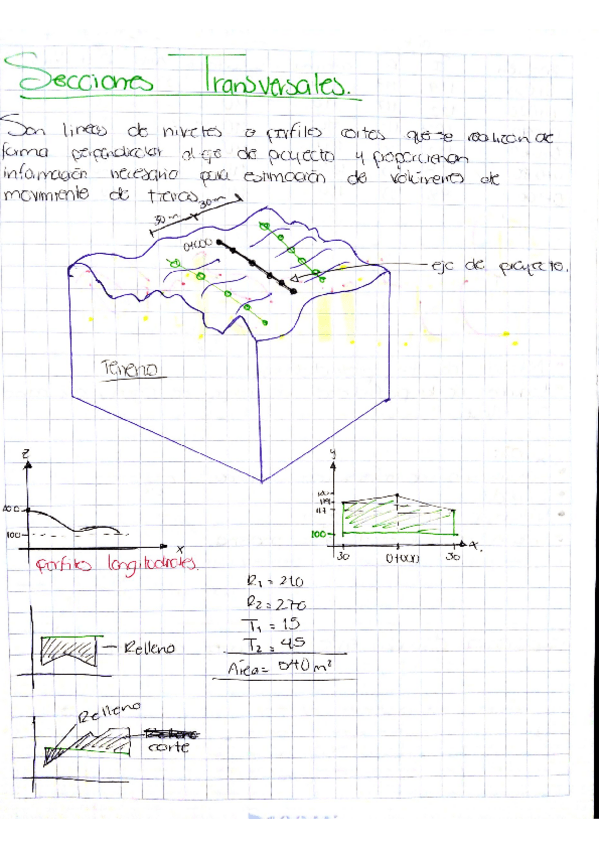 Secciones Transversales.
Son lineas de niveles o perfiles cortes que se realizan de
forma perpendicular al eje de proyecto y proporcionan
información necesario para estimación de volúmenes de
movimiento de tierras
30 m 30 m
0+000
eje de proyecto.
Terreno
z
y
100
100
117
100
x
30 0+000 30 x.
perfiles longitudinales.
R1 = 210
R2 = 270
T1 = 15
T2 = 45
Área = 540 m²
Relleno
Relleno
corte